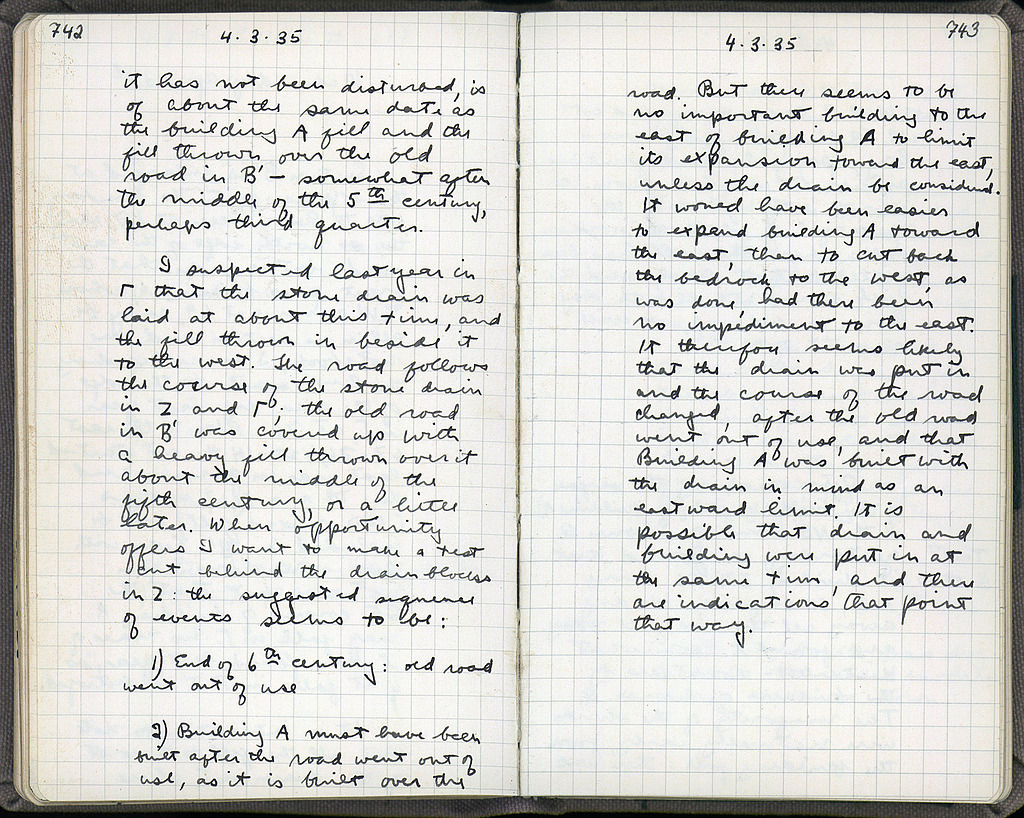 742
4.3.35
it has not been disturbed, is
of about the same date as
the building A fill and the
fill thrown over the old
road in B' – somewhat after
the middle of the 5th century,
perhaps third quarter.
I suspected last year in
Γ that the stone drain was
laid at about this time, and
the fill thrown in beside it
to the west. The road follows
the course of the stone drain
in Z and Γ; the old road
in B' was covered up with
a heavy fill thrown over it
about the middle of the
fifth century, or a little
later. When opportunity
offers I want to make a test
cut behind the drain blocks
in Z: the suggested sequence
of events seems to be:
1) End of 6th century: old road
went out of use
2) Building A must have been
built after the road went out of
use, as it is built over the
743
4.3.35
road. But there seems to be
no important building to the
east of building A to limit
its expansion toward the east,
unless the drain be considered.
It would have been easier
to expand building A toward
the east, than to cut back
the bedrock to the west, as
was done, had there been
no impediment to the east.
It therefore seems likely
that the drain was put in
and the course of the road
changed, after the old road
went out of use, and that
Building A was built with
the drain in mind as an
eastward limit. It is
possible that drain and
building were put in at
the same time, and there
are indications that point
that way.